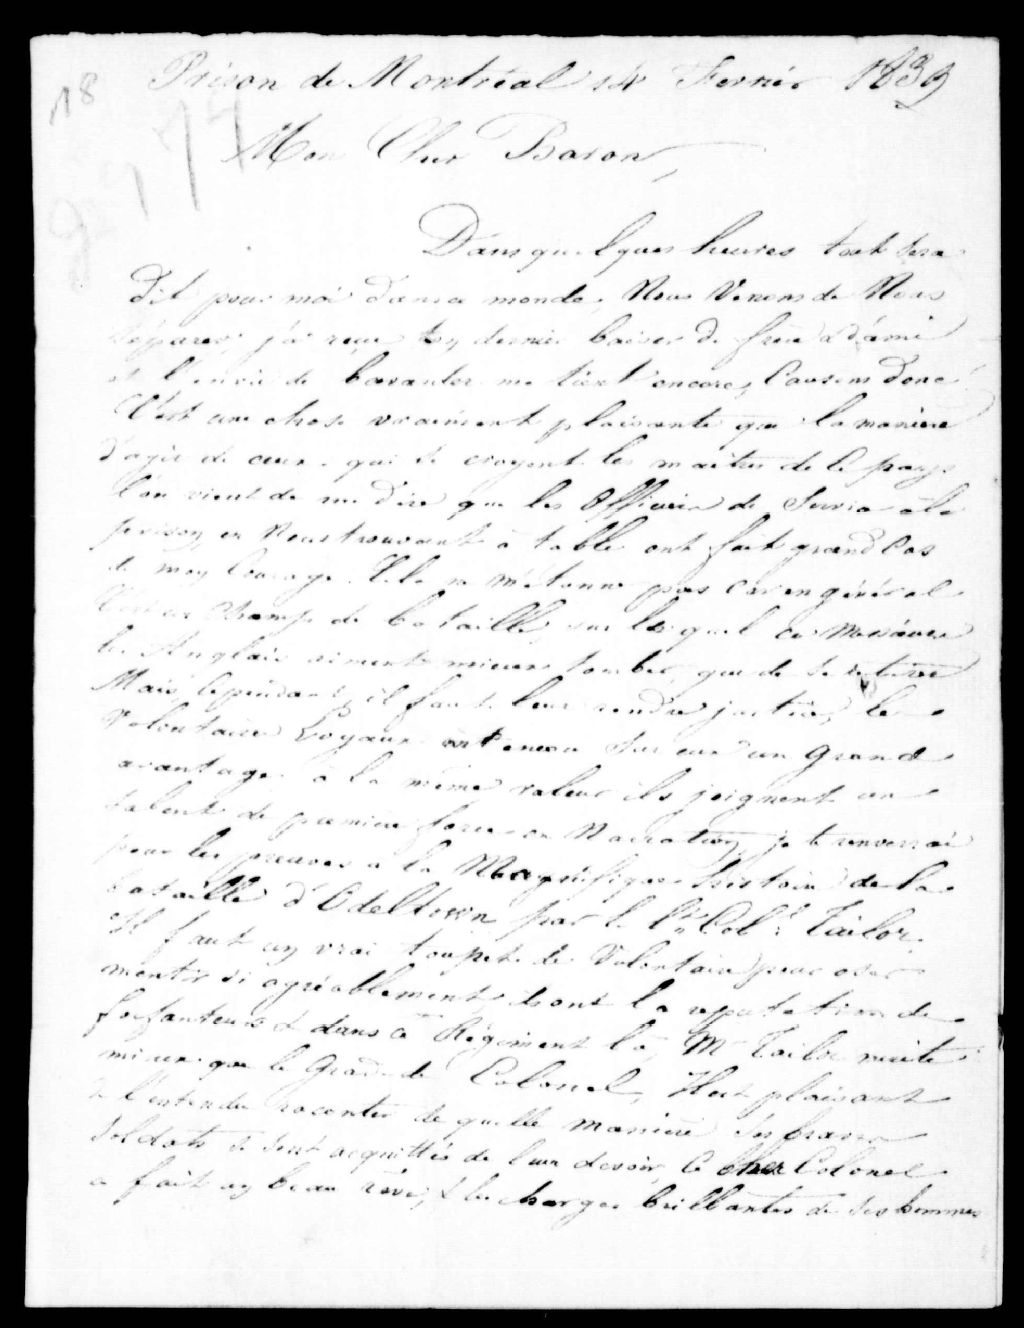 18
Prison de Montréal 14 Fevrier 1839
17
Mon Cher Baron,
Dans quelques heures tout sera
dit pour moi dans ce monde, Nous Venons de Nous
séparer, j'ai reçu ton dernier baiser de frère & d'ami
et l'envie de bavarder me tient encore, Causons donc
C'est une chose vraiment plaisante que la manière
d'agir de ceux qui se croyent les maitres de le pays
l'on vient de me dire que les Officiers de Service à la
prison, en Nous trouvant à table ont fait grand Cas
de mon Courage. Cela ne m'étonne pas car en général
C'est un Champ de bataille sur lequel ce
les Anglais aiment mieux tomber que de se retirer
Mais cependant, il faut leur rendre justice, les
Volontaires Loyaux ont encore sur eux un grand
avantage à la même valeur ils joignent un
talent de première force en Narration, je te renverrai
pour les preuves a la Magnifique histoire de la
bataille d'Odeltown par le Lt Col. Tailor.
Il faut un vrai toupet de Volontaire pour oser
mentir si agréablement, ils ont la reputation de
fanfanteurs & dans ce Régiment là, Mr Tailor mérite
mieux que le Grade de Colonel, Il est plaisant
de l'entendre raconter de quelle manière ses braves
soldats se sont acquittés de leur devoir, Ce cher Colonel
a fait un beau rêve, & les charges brillantes de ses hommes